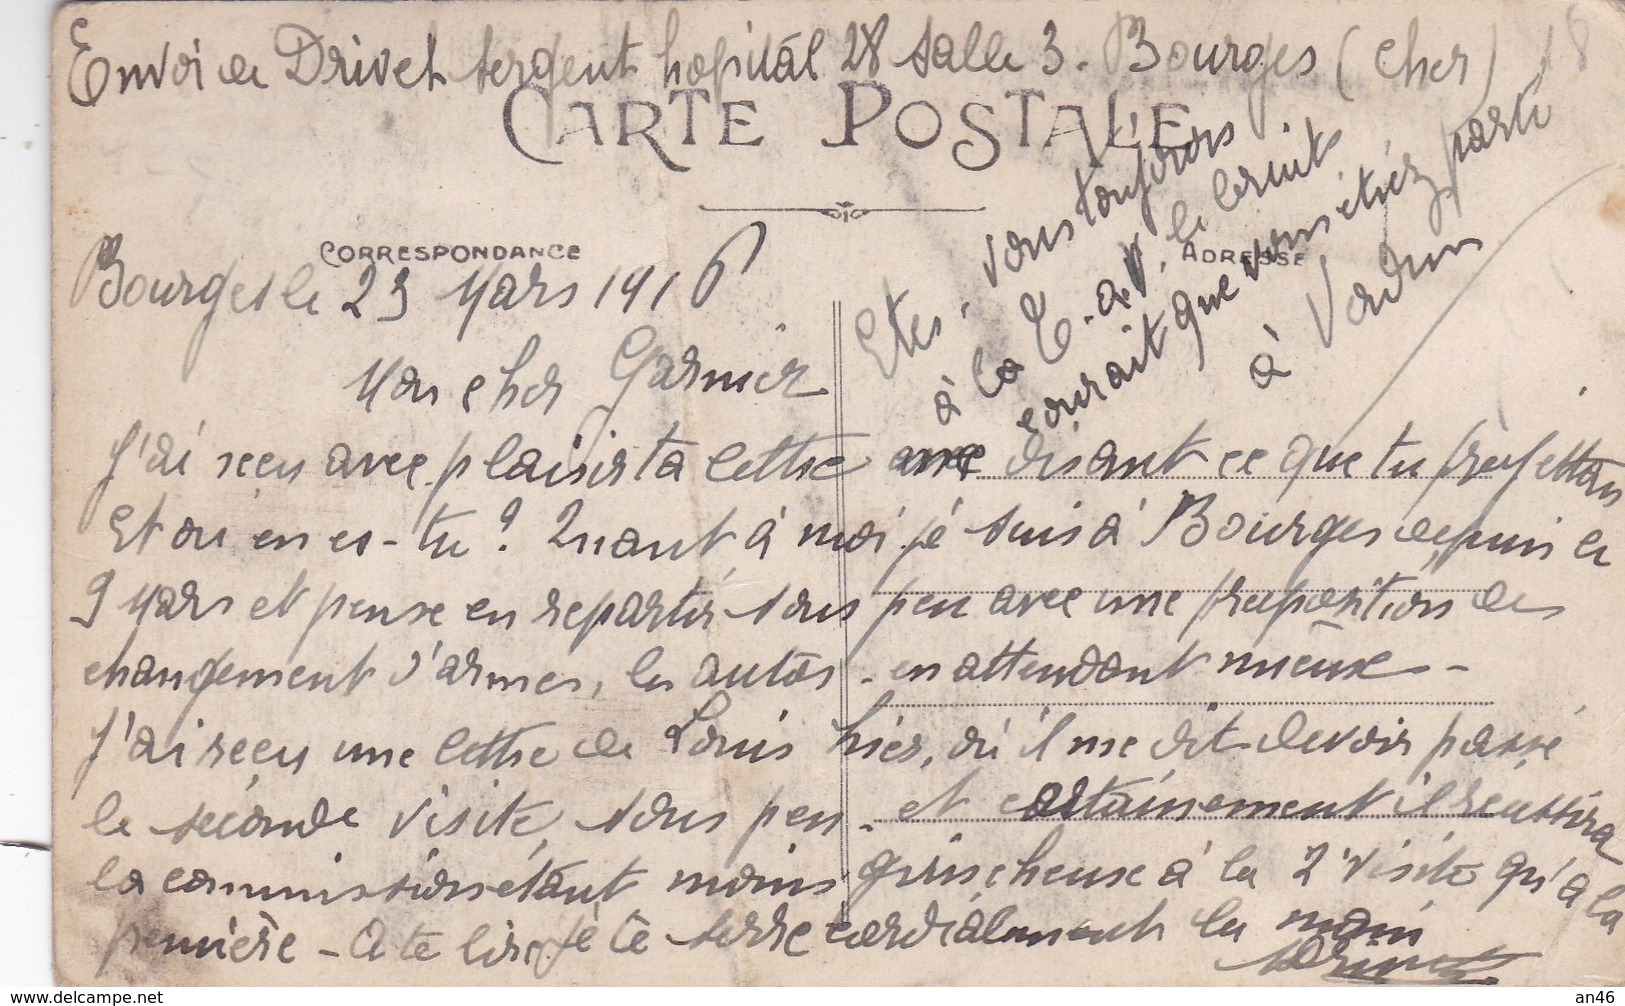 Envoi de Drivet sergent hopital 28 salle 3. Bourges (Cher)
CARTE POSTALE
CORRESPONDANCE
ADRESSE
Bourges le 23 Mars 1916
Mon cher Garnier
J'ai reçu avec plaisir ta lettre me disant ce que tu
Et où en es-tu? Quant à moi je suis à Bourges depuis le
9 Mars et pense en repartir sous peu avec une proposition de
changement d'armes, les autos - en attendant mieux -
J'ai reçu une lettre de Louis hier, où il me dit devoir passé
la séconde visite, sous peu - et certainement il réussira
la commission étant moins grincheuse à la 2e visite qu'à la
première - A te lire je te serre cordialement la main
Drivet
Etes-vous toujours
à la
courait que vous étiez parti
à Verdun
www.delcampe.net
an46